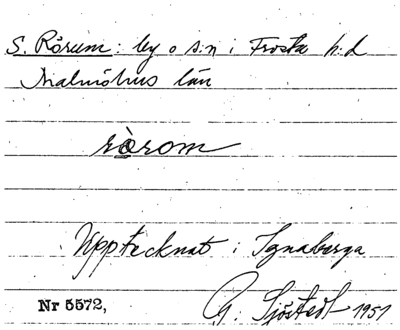 S. Rörum: by o s:n i Frosta h:d
Malmöhus län
rò̱rom
Upptecknat i Ignaberga
Nr 5572, G. Sjöstedt 1951